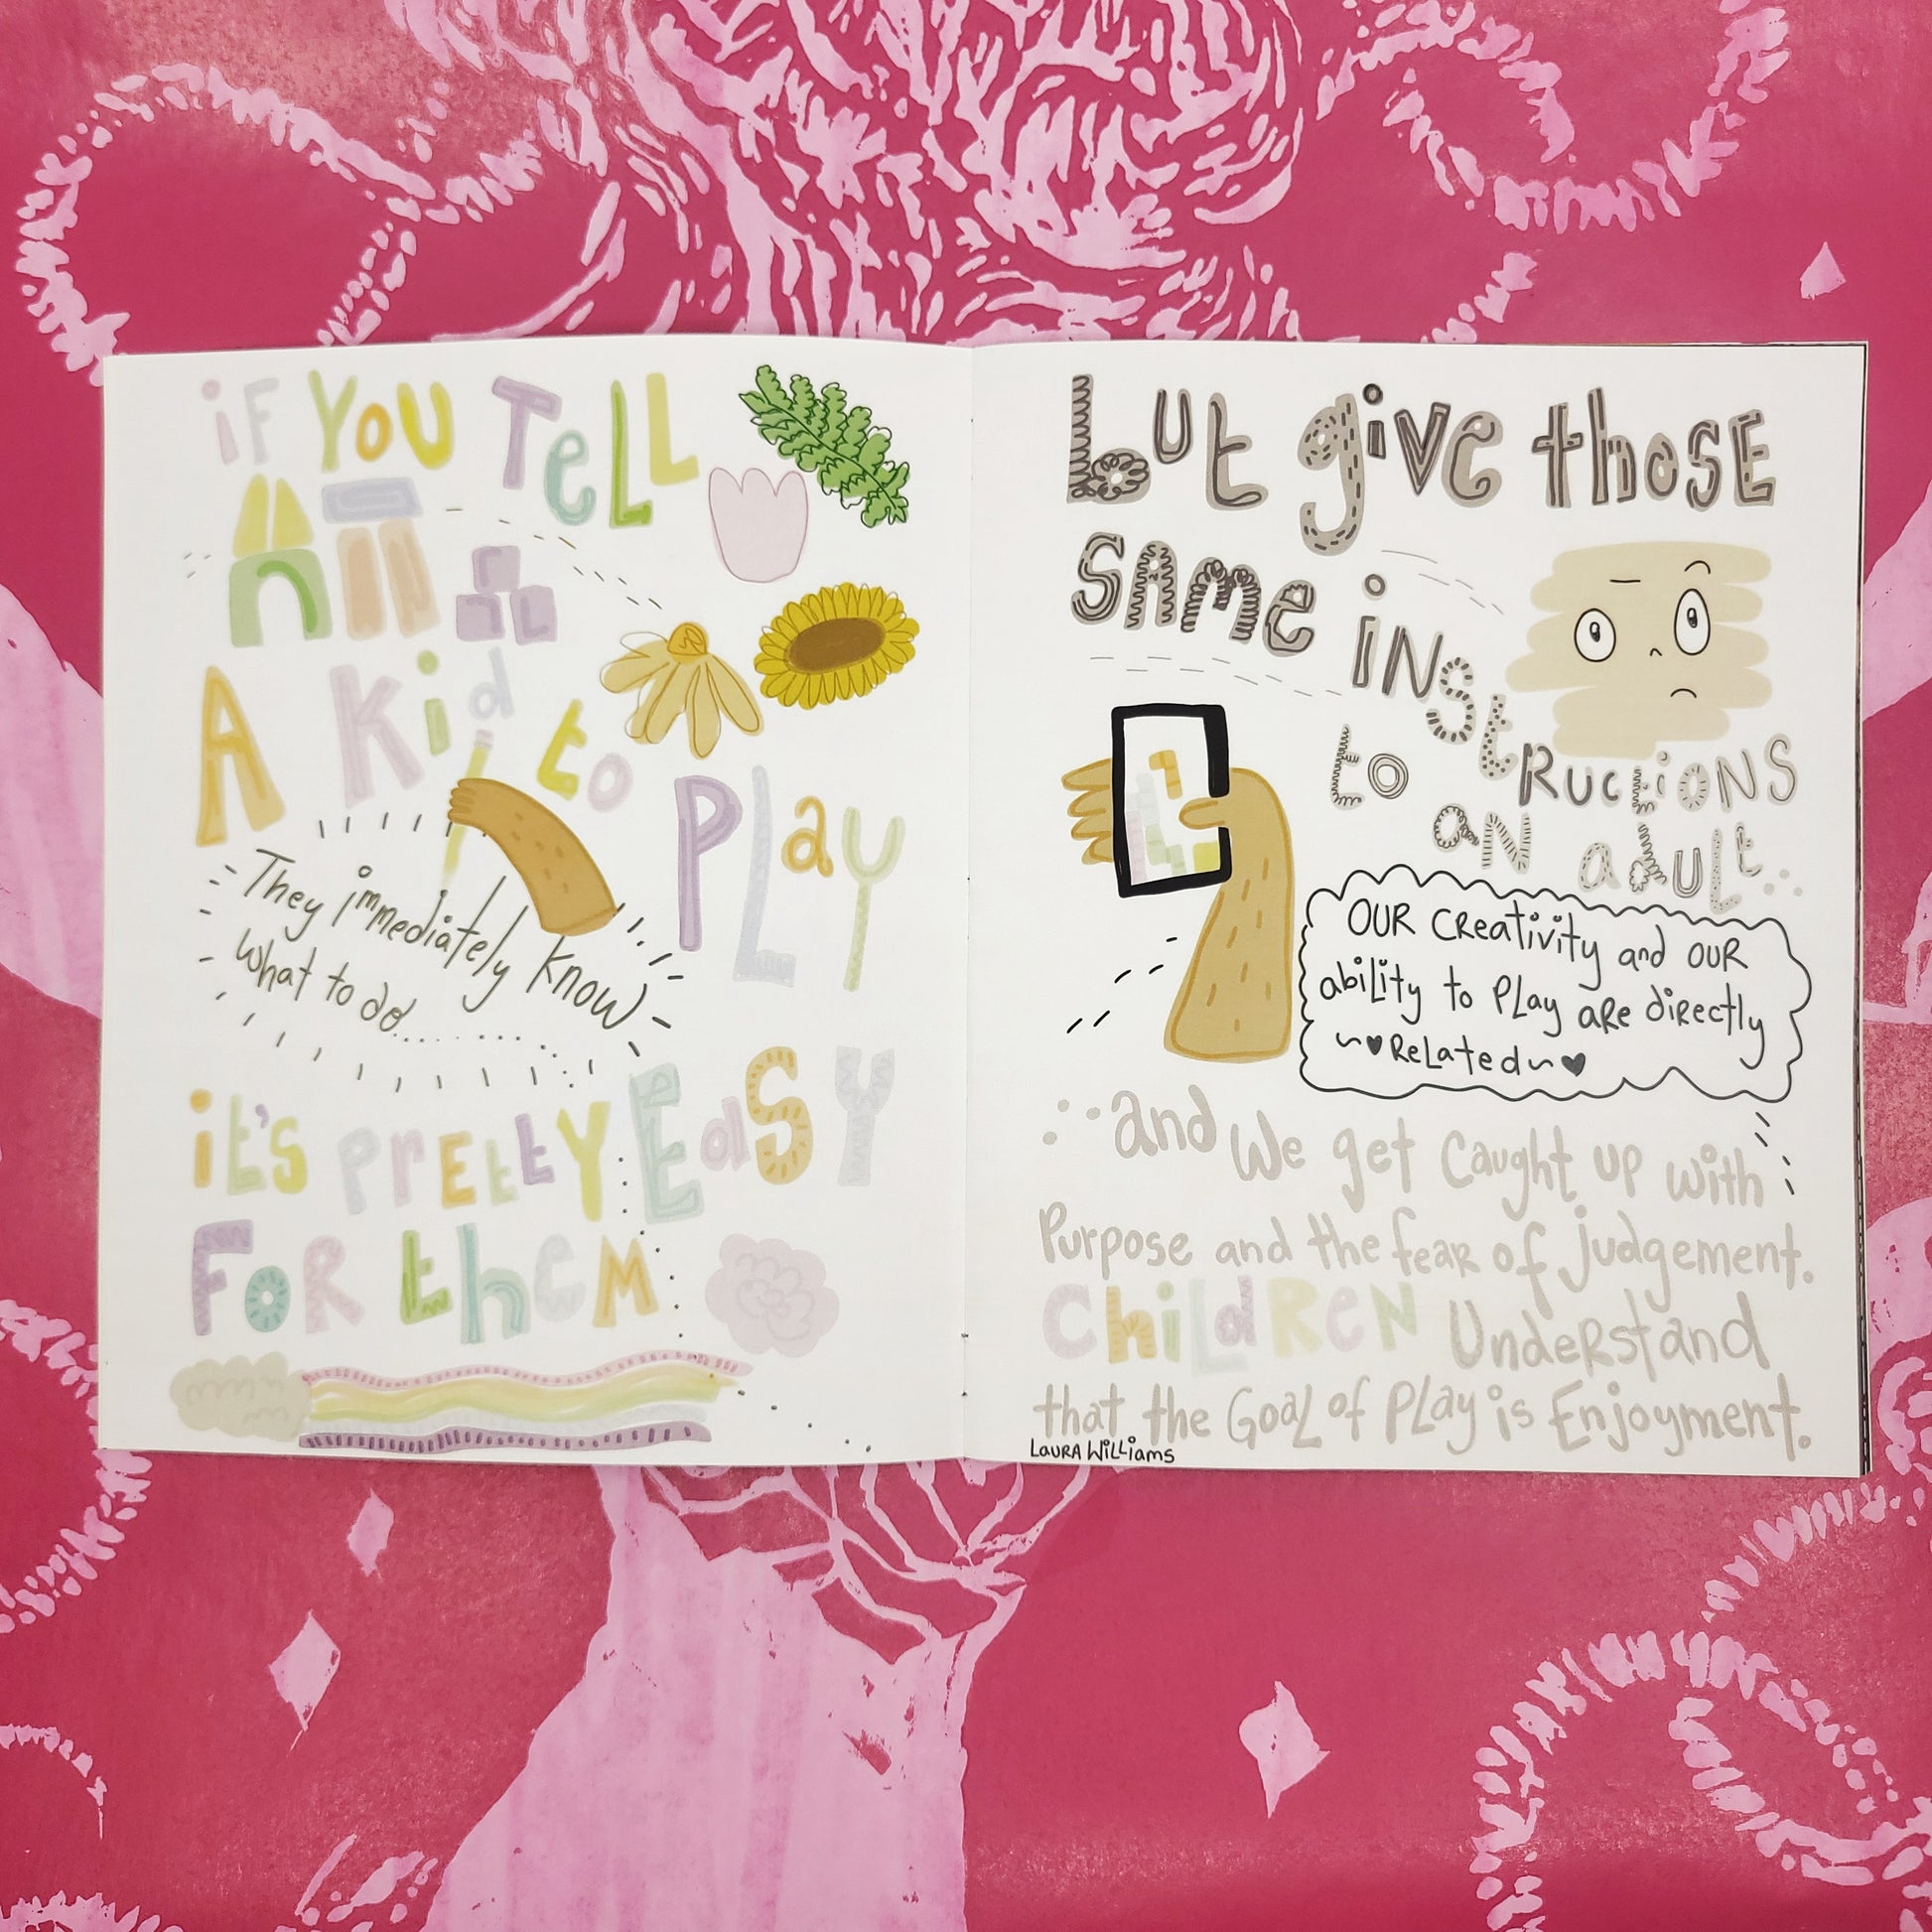 iF YOU TeLL
A Kid to PLay
They immediately know
what to do...
it's pREttY EaSY
FoR them
but give those
SAme iNStRuctiONS
to aN adult...
OUR CReativity and OUR
ability to PLay aRe diRectly
~♥ReLated~♥
..and We get Caught up with
Purpose and the feaR of judgement.
ChiLdReN UndeRstand
that the GoaL of PLay is Enjoyment.
LauRA WiLLiams